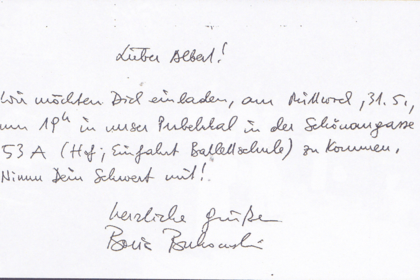 Lieber Albert!
Wir möchten Dich einladen, am Mittwoch, 31.5.,
um 19h in unser Probelokal in der Schönaugasse
53 A (Hof; Einfahrt Ballettschule) zu kommen.
Nimm Dein Schwert mit!
herzliche Grüße
Boris Bukowski